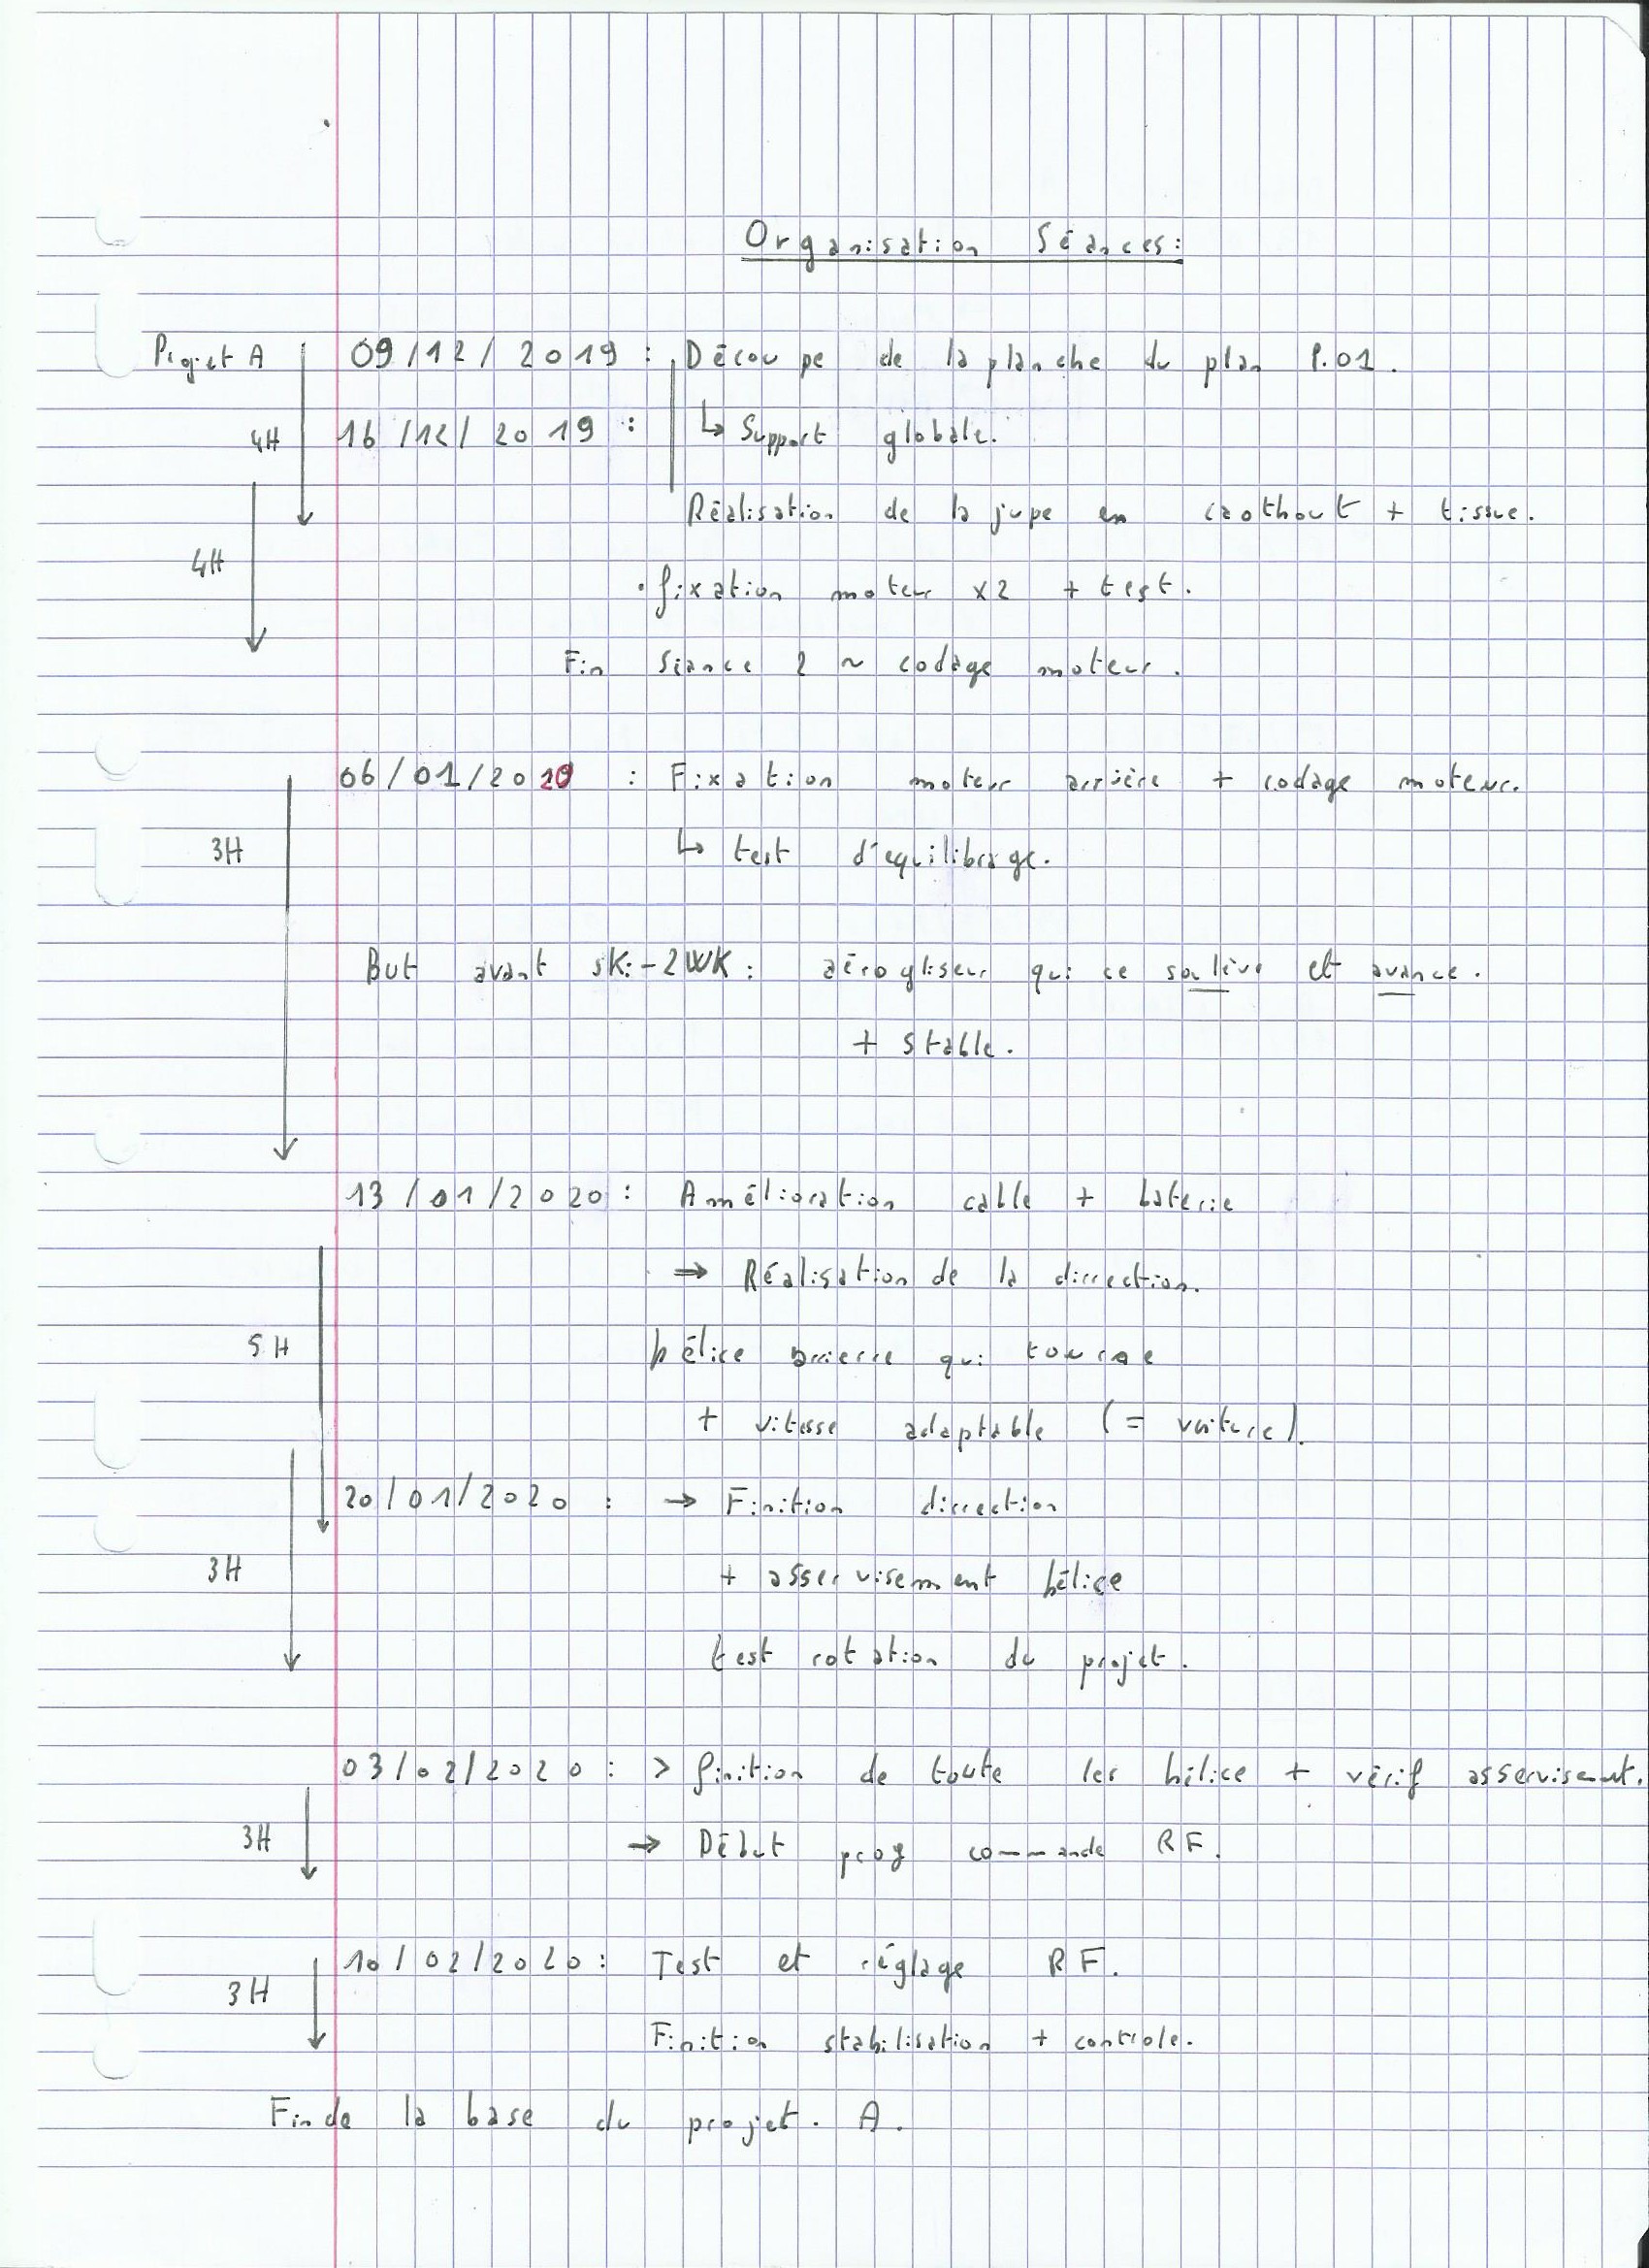 Organisation Séances:
Projet A 09/12/2019 : Découpe de la planche du plan P.01.
4H 16/12/2019 : ↳ Support globale.
Réalisation de la jupe en caothout + tissue.
4H · fixation moteur x2 + test.
Fin Séance 2 ~ codage moteur.
06/01/2020 : Fixation moteur arrière + codage moteur.
3H ↳ test d'equilibrage.
But avant ski-2WK : aérogliseur qui ce soulève et avance.
+ stable.
13/01/2020 : Amélioration cable + baterie
⇒ Réalisation de la dirrection.
5H hélice arrierre qui tourne
+ vitesse adaptable (= voiture).
20/01/2020 : → Finition dirrection
3H + asservisement hélice
test rotation du projet.
03/02/2020 : > finition de toute les hélice + vérif asservisement.
3H → Début prog commande RF.
10/02/2020 : Test et réglage RF.
3H Finition stabilisation + controle.
Fin de la base du projet. A.